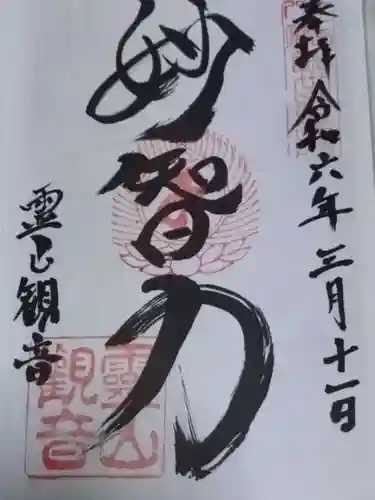 奉拝
令和六年三月十一日
妙智力
霊山観音
靈山
觀音